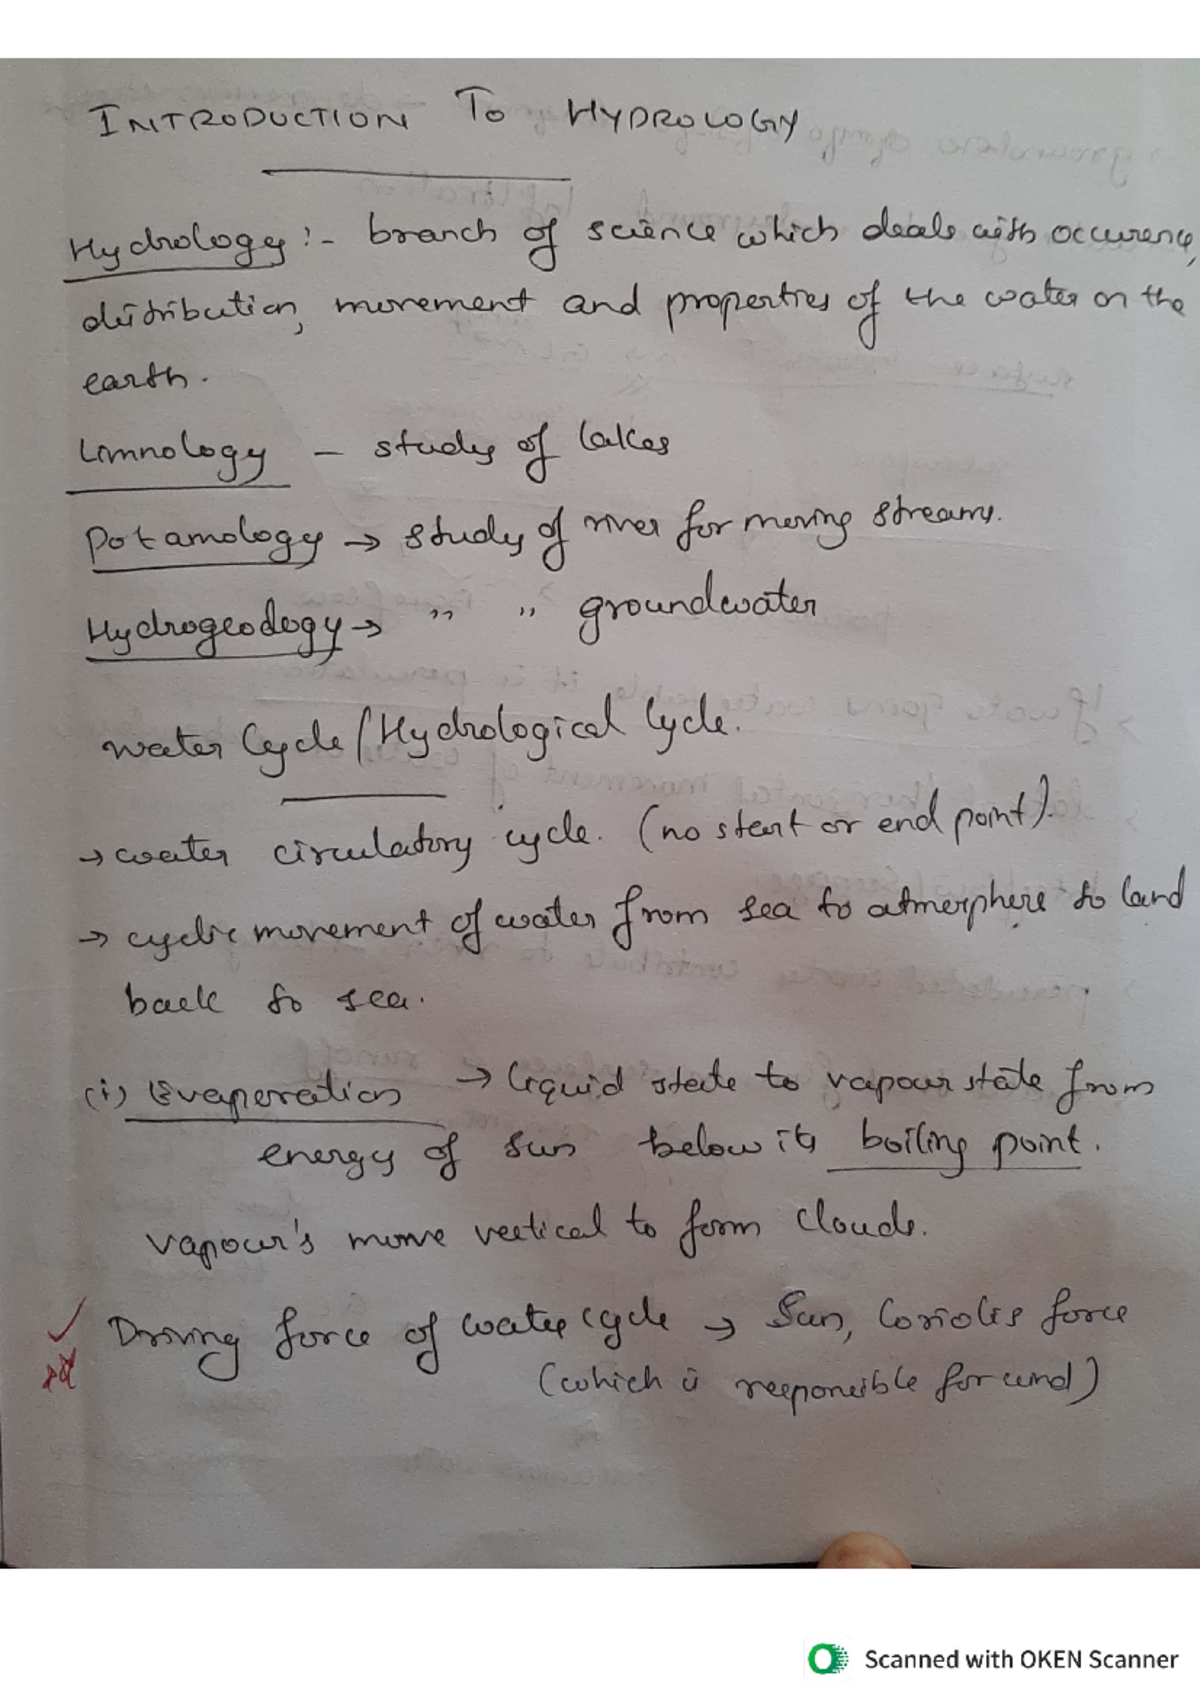 INTRODUCTION TO HYDROLOGY
Hydrology :- branch of science which deals with occurence,
distribution, movement and properties of the water on the
earth.
Limnology - study of lakes
Potamology → study of river for moving streams.
Hydrogeology → " " groundwater
Water Cycle / Hydrological Cycle.
→ water circulatory cycle. (no start or end point).
→ cyclic movement of water from sea to atmosphere to land
back to sea.
(i) Evaporation → liquid state to vapour state from
energy of sun below its boiling point.
vapour's move vertical to form clouds.
Driving force of water cycle → Sun, Coriolis force
(which is responsible for wind)
Scanned with OKEN Scanner